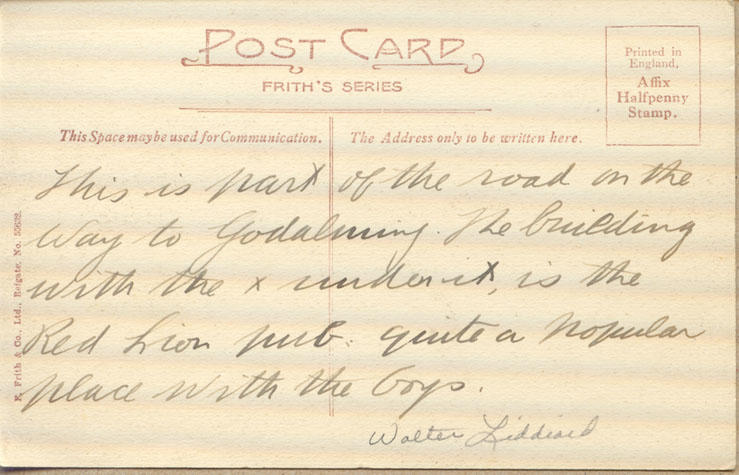 POST CARD
FRITH'S SERIES
Printed in
England.
Affix
Halfpenny
Stamp.
This Space may be used for Communication.
The Address only to be written here.
This is part of the road on the
way to Godalming. The building
with the x under it, is the
Red Lion pub. quite a popular
place with the boys.
Walter Liddiard
F. Frith & Co., Ltd., Reigate. No. 55638.